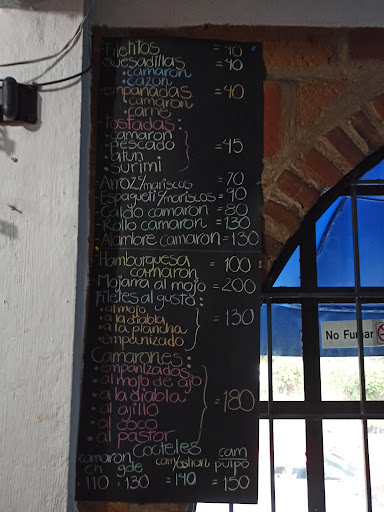 -Filetitos = 40
-quesadillas = 40
•camarón
•cazón
-empañadas = 40
•camarón
•carne
-tostadas:
•camarón
•pescado = 45
•atun
•surimi
-Arroz c/mariscos = 70
-Espagueti c/mariscos = 90
-Caldo camarón = 80
-Rollo camarón = 130
-Alambre camarón = 130
-Hamburguesa = 100
camarón
-Mojarra al mojo = 200
Filetes al gusto:
•al mojo
•a la diabla = 130
•a la plancha
•empanizado
Camarones:
•empanizados
•al mojo de ajo
•a la diabla = 180
•al ajillo
•al coco
•al pastor
Cocteles
camaron cam/ostion cam/pulpo
ch gde
110 • 130 = 140 = 150
No Fumar